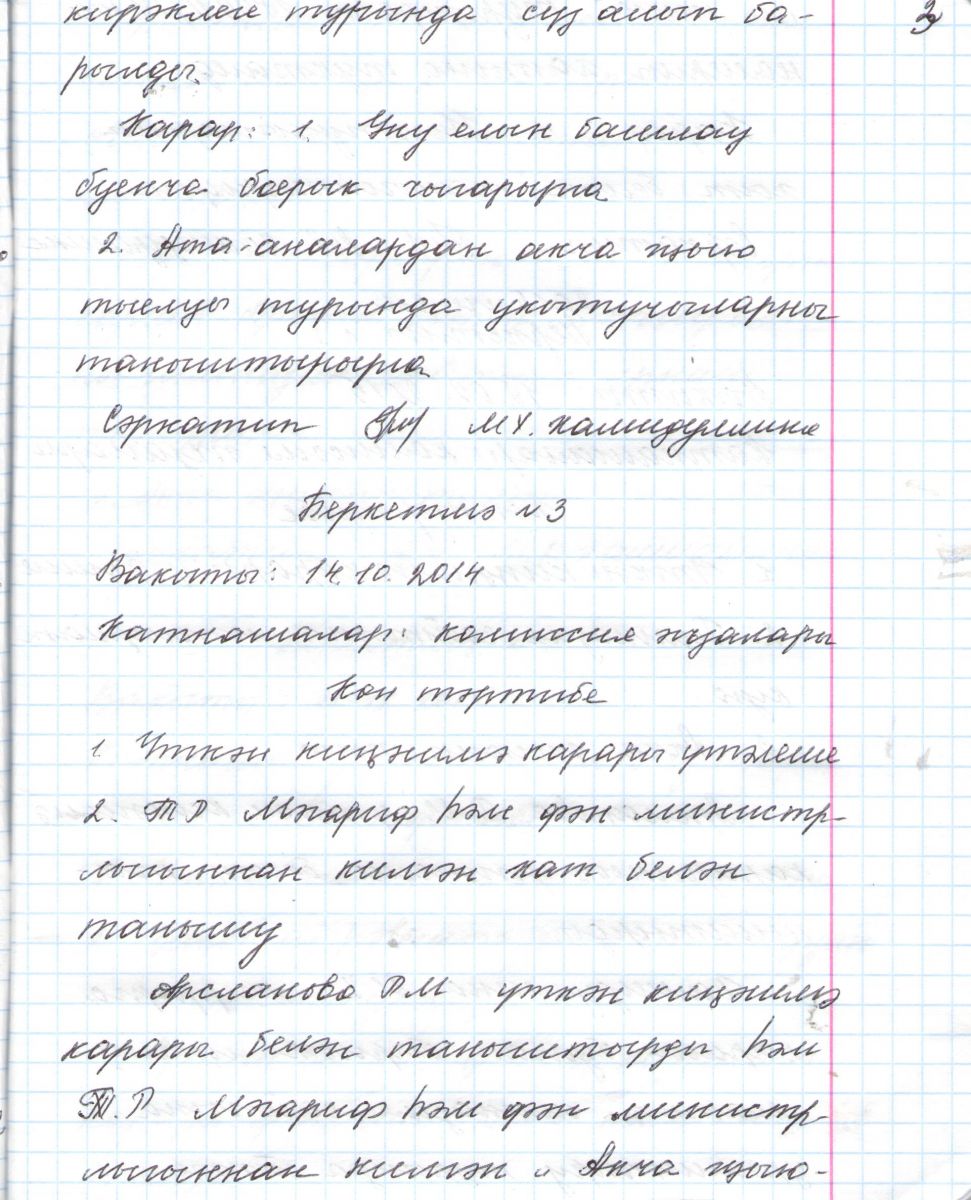 кирәклеге турында сүз алып ба-
рылды.
Карар: 1. Уку елын башлау
буенча боерык чыгарырга
2. Ата-аналардан акча җыю
тыелуы турында укытучыларны
таныштырырга.
Сәркатип М.Х. Хамидуллина
Беркетмә №3
Вакыты: 14.10.2014
Катнашалар: комиссия әгъзалары
Көн тәртибе
1. Үткән киңәшмә карары үтәлеше
2. ТР Мәгариф һәм фән министр-
лыгыннан килгән хат белән
танышу
Арсланова РМ үткән киңәшмә
карары белән таныштырды һәм
Т.Р Мәгариф һәм фән министр-
лыгыннан килгән „Акча җыю-